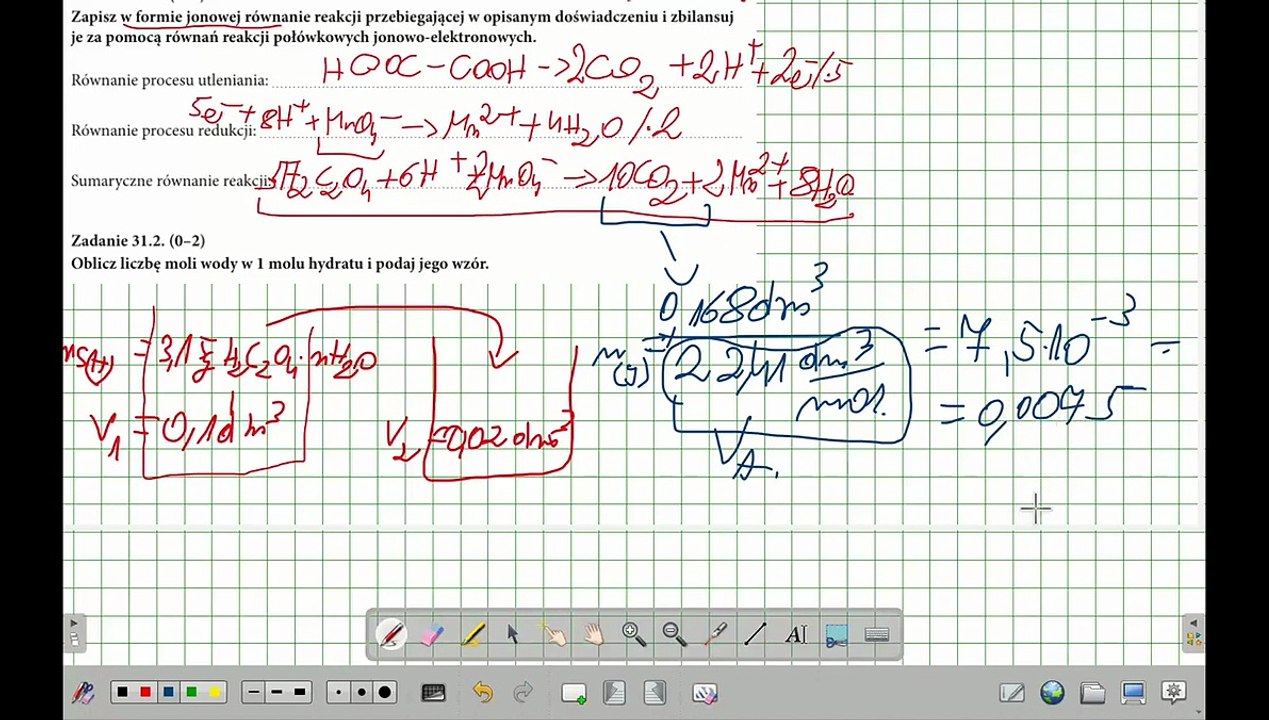 Zapisz w formie jonowej równanie reakcji przebiegającej w opisanym doświadczeniu i zbilansuj
je za pomocą równań reakcji połówkowych jonowo-elektronowych.
Równanie procesu utleniania: HOOC-COOH → 2CO₂ + 2H⁺ + 2e⁻ /·5
Równanie procesu redukcji: 5e⁻ + 8H⁺ + MnO₄⁻ → Mn²⁺ + 4H₂O /·2
Sumaryczne równanie reakcji: 5H₂C₂O₄ + 6H⁺ + 2MnO₄⁻ → 10CO₂ + 2Mn²⁺ + 8H₂O
Zadanie 31.2. (0–2)
Oblicz liczbę moli wody w 1 molu hydratu i podaj jego wzór.
= 3,15g H₂C₂O₄·nH₂O
V₁ = 0,1dm³
V₂ = 0,02dm³
0,168dm³
22,41 dm³
mol
= 7,5·10⁻³ =
= 0,0075
AI